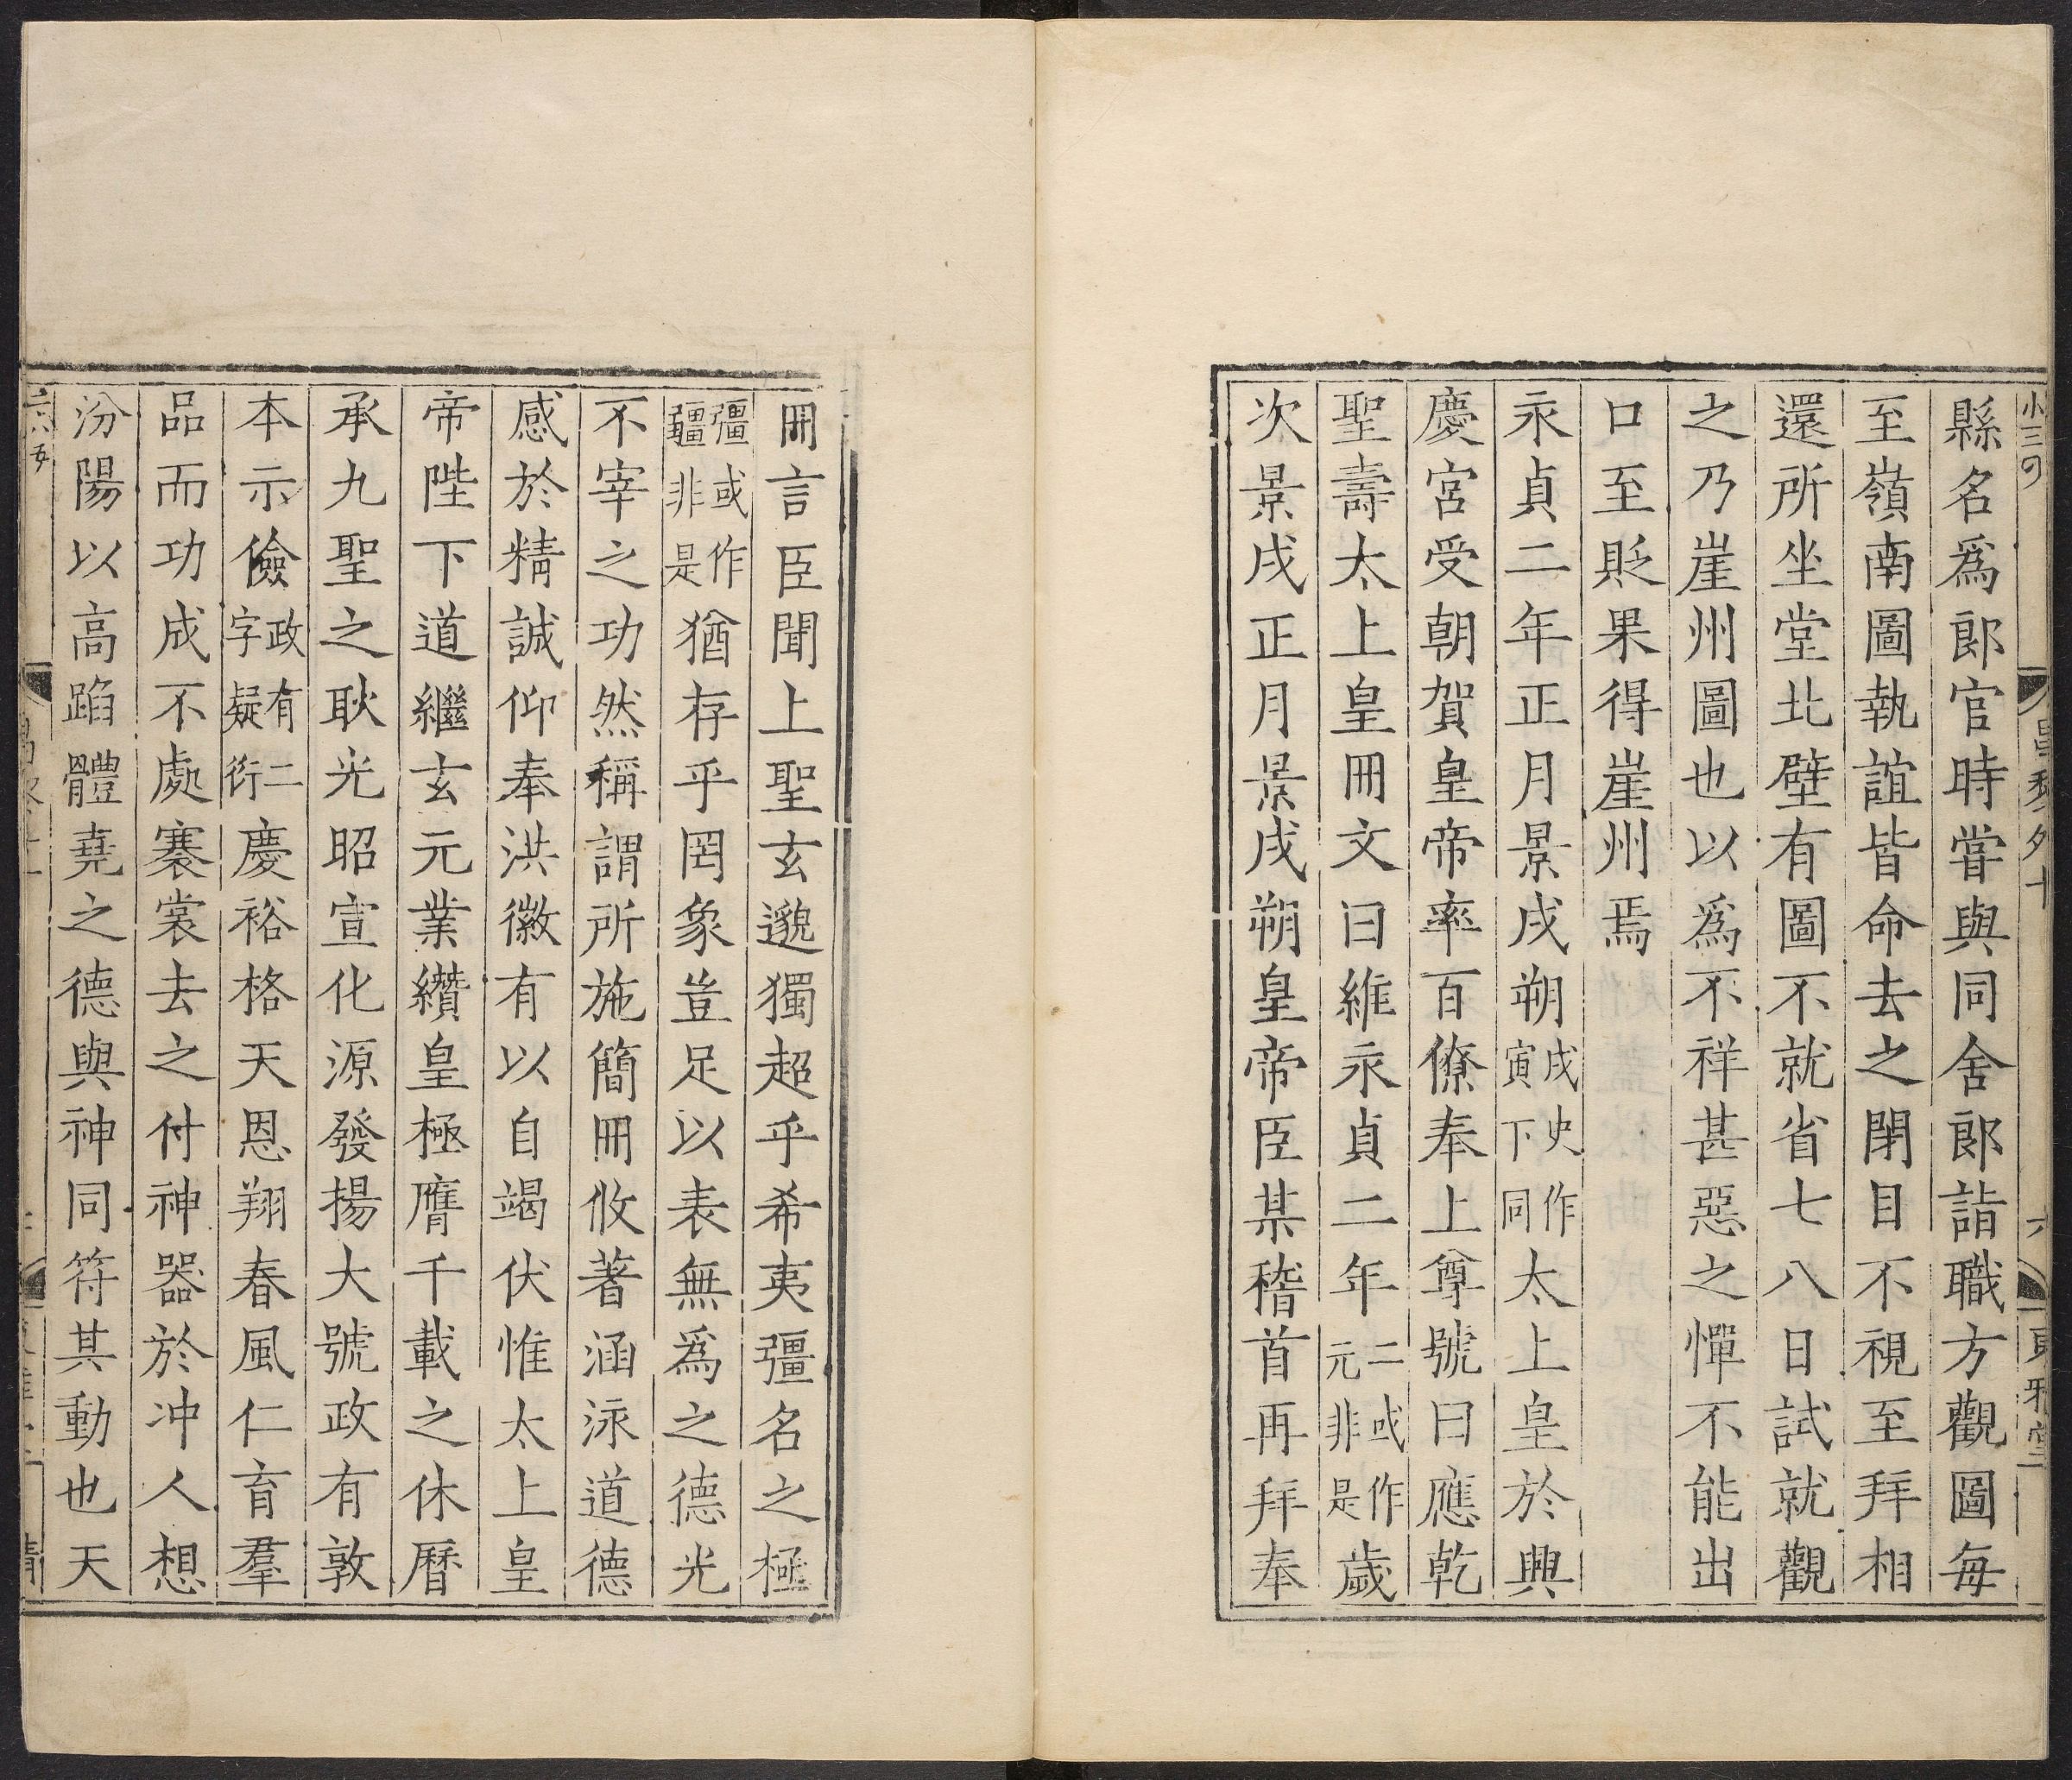 縣名爲郎官時嘗與同舍郎詣職方觀圖每
至嶺南圖執誼皆命去之閉目不視至拜相
還所坐堂北壁有圖不就省七八日試就觀
之乃崖州圖也以爲不祥甚惡之憚不能出
口至貶果得崖州焉
永貞二年正月景戌朔戌史作寅下同太上皇於興
慶宮受朝賀皇帝率百僚奉上尊號曰應乾
聖壽太上皇冊文曰維永貞二年二或作元非是歲
次景戌正月景戌朔皇帝臣某稽首再拜奉
冊言臣聞上聖玄邈獨超乎希夷彊名之極
彊或作疆非是猶存乎罔象豈足以表無爲之德光
不宰之功然稱謂所施簡冊攸著涵泳道德
感於精誠仰奉洪徽有以自竭伏惟太上皇
帝陛下道繼玄元業纘皇極膺千載之休曆
承九聖之耿光昭宣化源發揚大號政有敦
本示儉政有二字疑衍慶裕格天恩翔春風仁育羣
品而功成不處褰裳去之付神器於冲人想
汾陽以高蹈體堯之德與神同符其動也天